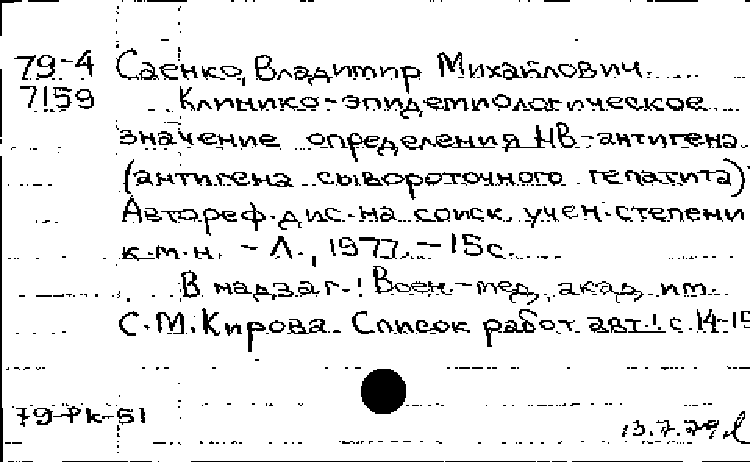 79-4 Саенко, Владимир Михайлович.
7159 Клинико-эпидемиологическое
значение определения НВ-антигена
(антигена сывороточного гепатита)
Автореф. дис. на соиск. учен. степени
к.м.н. - Л., 1977. - 15с.
В надзаг.: Воен.-мед. акад. им.
С.М. Кирова. Список работ авт.: с. 14-15
79-РК-51
13.7.79